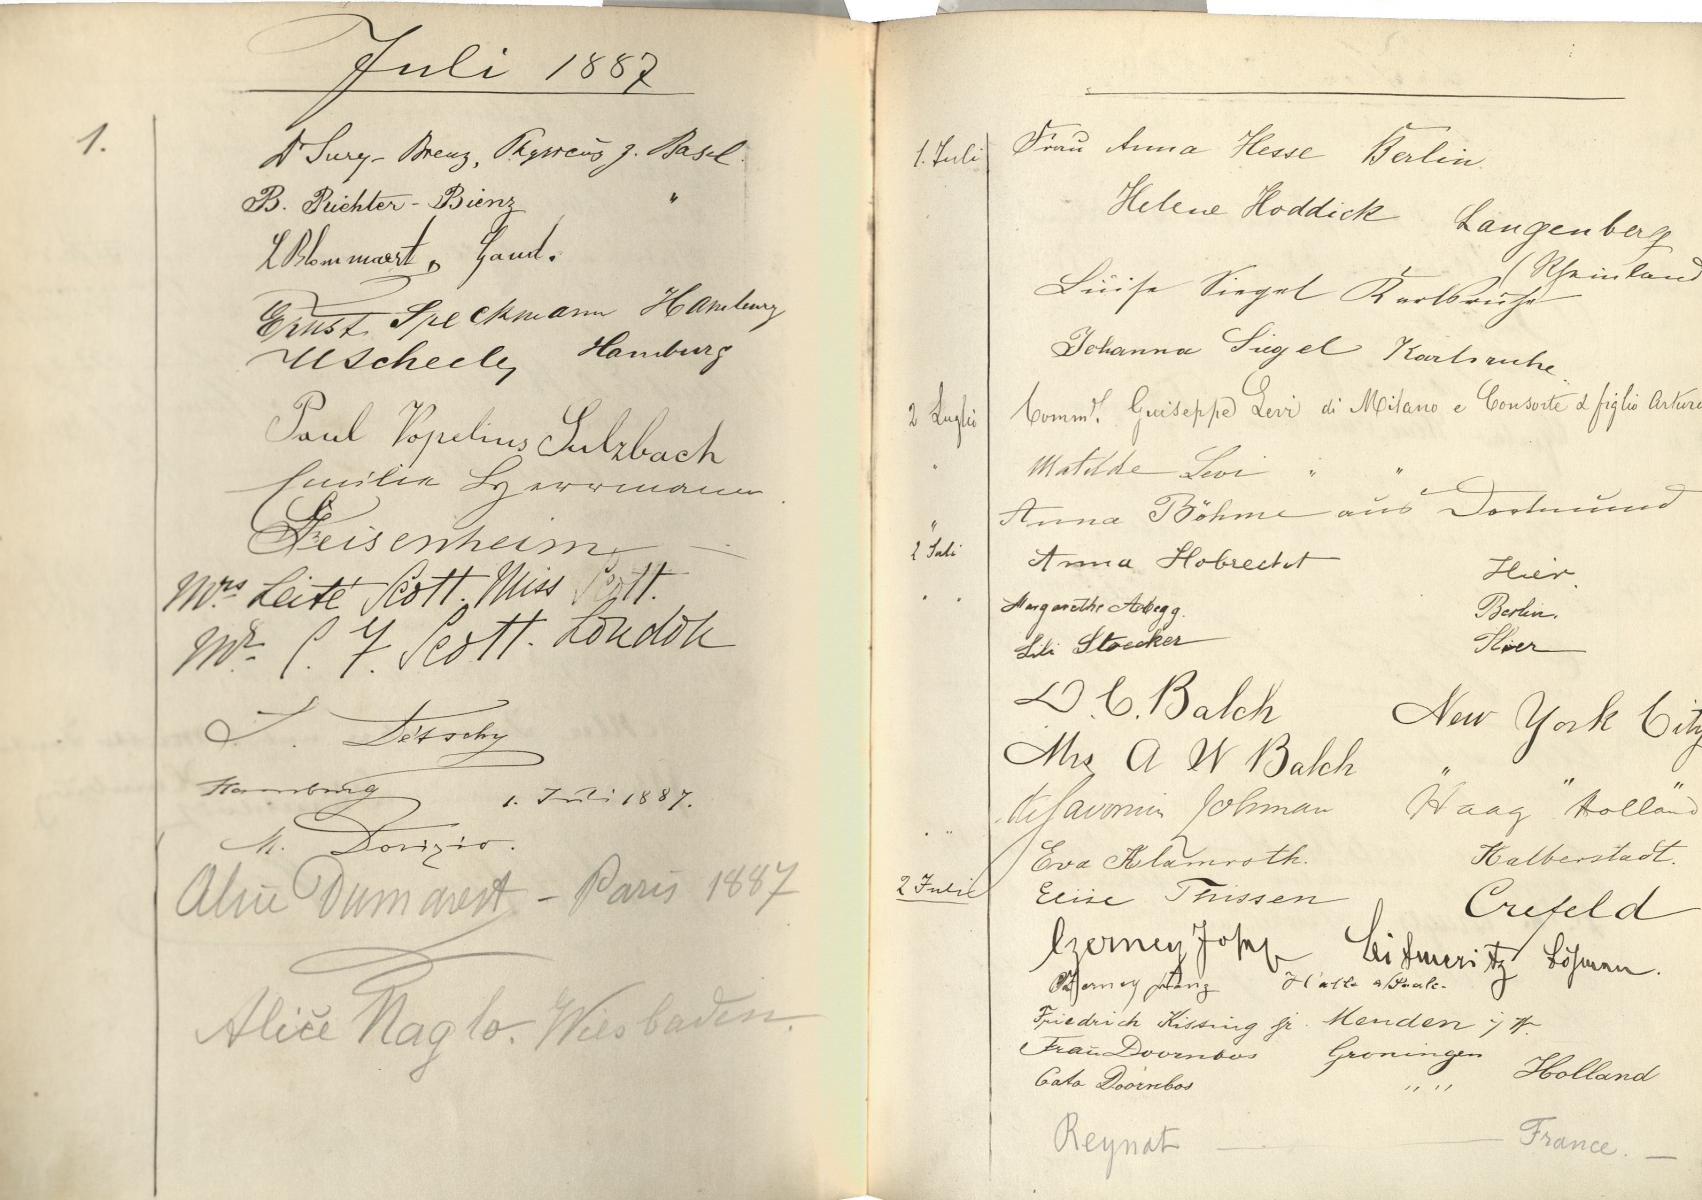 Juli 1887
1.
Dr Sury-Bienz, Physicus z. Basel.
B. Richter-Bienz "
L Blommaert, Gand.
Ernst Speckmann Hamburg
Hamburg
Paul Vopelius Sulzbach
Emilie Herrmann
Geisenheim
Mrs Leite Scott. Miss Scott.
Mr C. F. Scott. London
Hamburg 1. Juli 1887.
M. Dorizio.
Alice Dumarest - Paris 1887
Alice Naglo. Wiesbaden.
1. Juli Frau Anna Hesse Berlin.
Helene Hoddick Langenberg
(Rheinland
Luise Siegel Karlsruhe
Johanna Siegel Karlsruhe.
2 Luglio Commd. Guiseppe Levi di Milano e Consorte & figlio Arturo
" Matilde Levi " "
" Anna Böhme aus Dortmund
2 Juli Anna Hobrecht Hier.
" Margarethe Abegg. Berlin.
Lili Stoecker Hier
D. C. Balch New York City
Mrs A W Balch " "
de Savornin Lohman Haag Holland
Eva Klamroth. Halberstadt.
2 Juli Elise Thissen Crefeld
Czerney Josef Leitmeritz Böhmen.
Czerney Franz Halle a/Saale.
Friedrich Kissing jr. Menden i/W.
Frau Doornbos Groningen
Holland
Cato Doornbos " "
Reynat — France. —